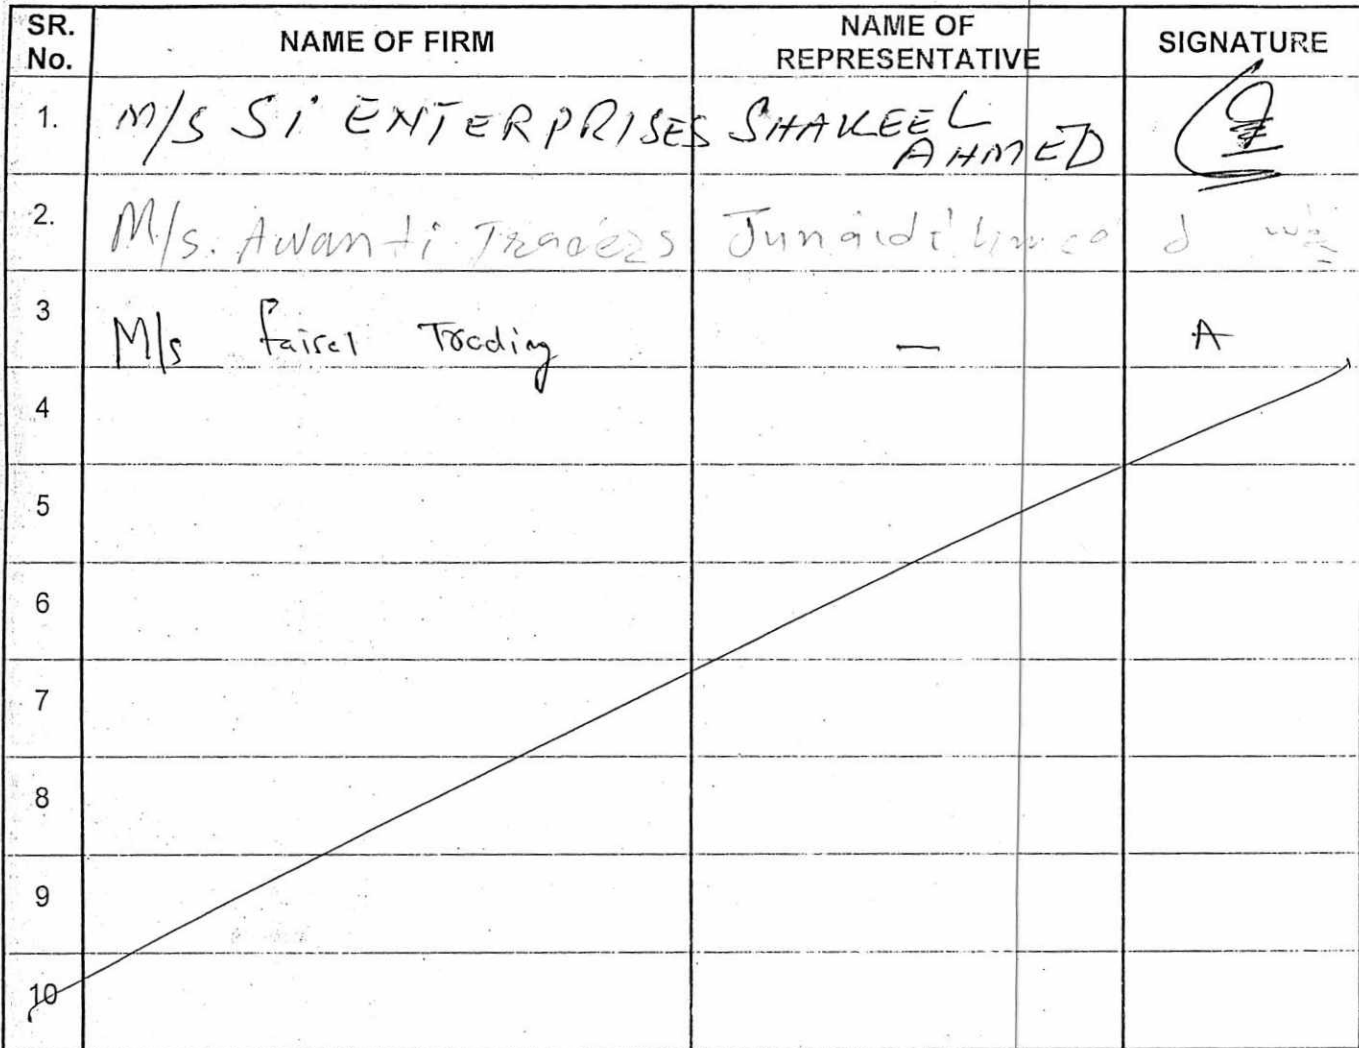 SR. No. NAME OF FIRM NAME OF REPRESENTATIVE SIGNATURE
1. M/S Si ENTERPRISES SHAKEEL AHMED
2. M/s. Awanti Traders Junaid
3 M/s faisel Trading — A
4
5
6
7
8
9
10